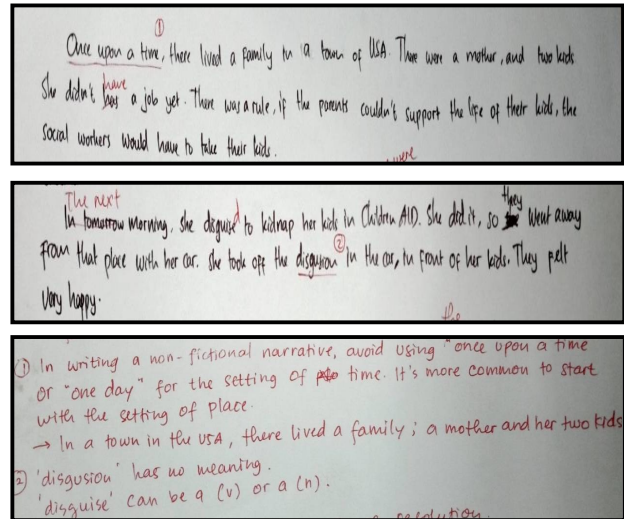 ①
Once upon a time, there lived a family in a town of USA. There were a mother, and two kids
have
She didn't has a job yet. There was a rule, if the parents couldn't support the life of their kids, the
social workers would have to take their kids.
were
The next they
In tomorrow morning, she disguised to kidnap her kids in Children AID. She did it, so went away
②
from that place with her car. she took off the disgusion in the car, in front of her kids. They felt
very happy.
the
① In writing a non-fictional narrative, avoid using "once upon a time
or "one day" for the setting of time. It's more common to start
with the setting of place.
→ In a town in the USA, there lived a family; a mother and her two kids
② 'disgusion' has no meaning.
'disguise' can be a (v) or a (n).
a resolution.